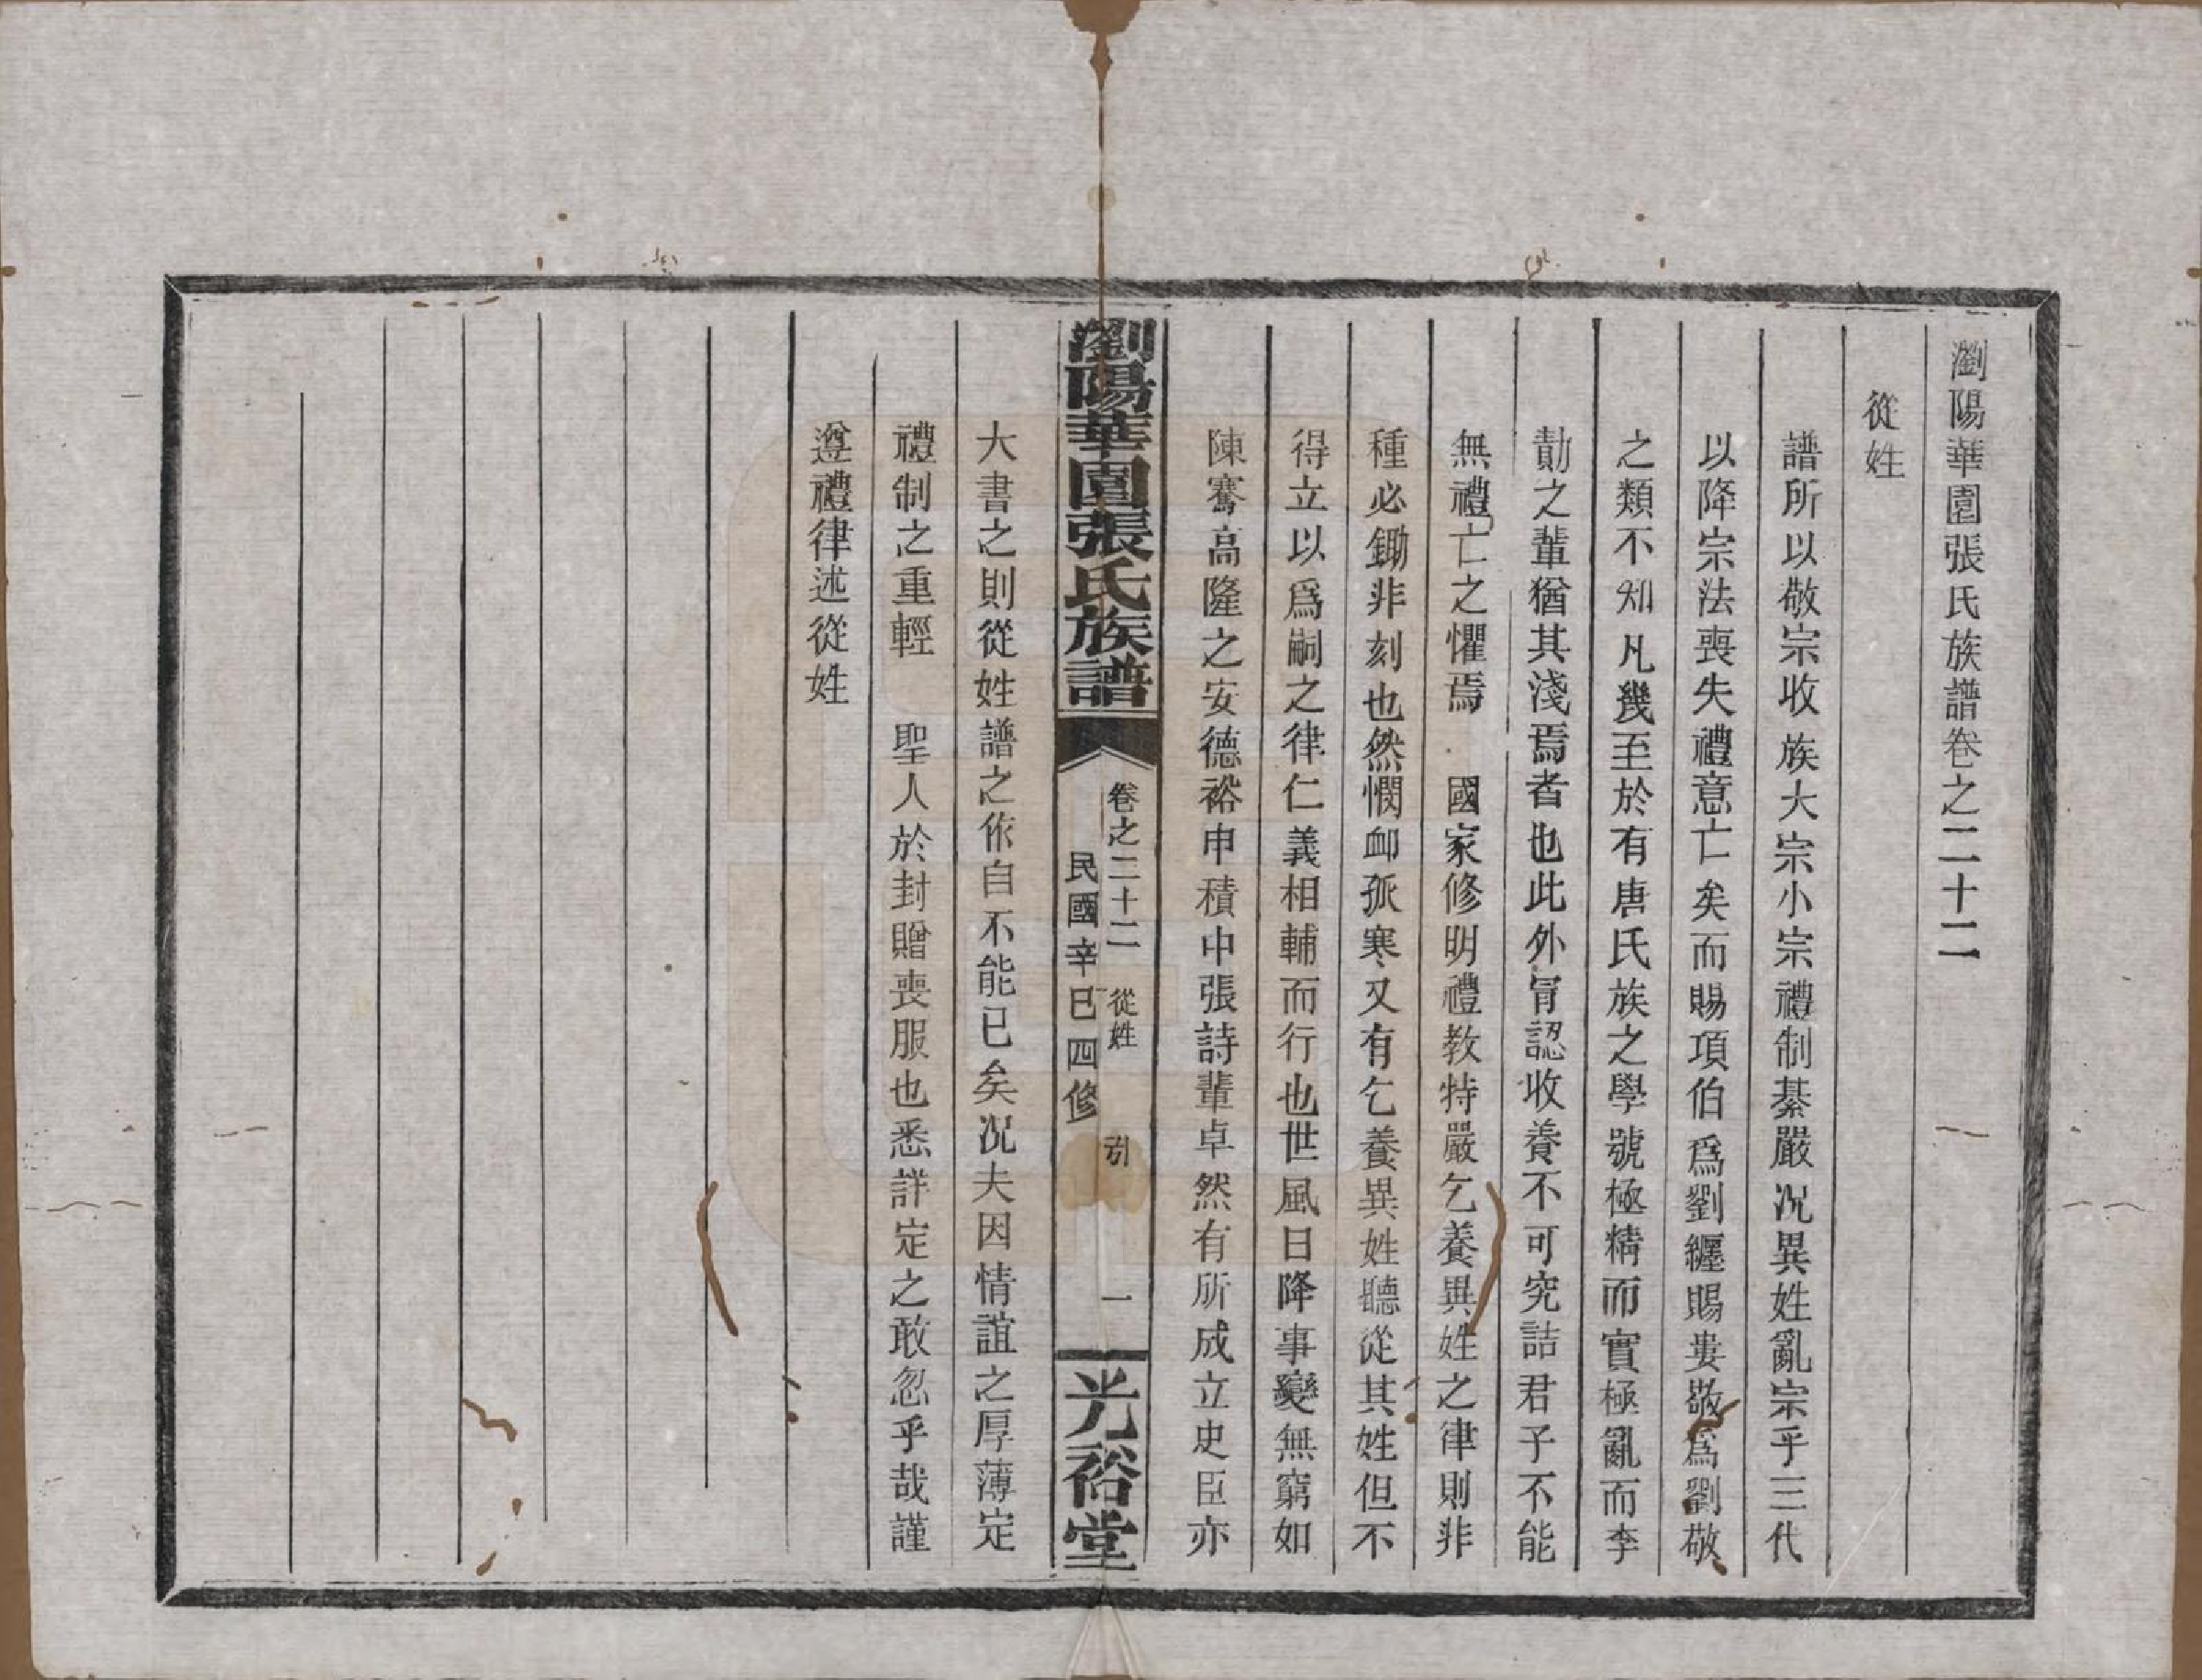 瀏陽華園張氏族譜卷之二十二
從姓
譜所以敬宗收族大宗小宗禮制綦嚴况異姓亂宗乎三代
以降宗法喪失禮意亡矣而賜項伯爲劉纏賜婁敬爲劉敬
之類不知凡幾至於有唐氏族之學號極精而實極亂而李
勣之輩猶其淺焉者也此外冐認收養不可究詰君子不能
無禮亡之懼焉 國家修明禮教特嚴乞養異姓之律則非
種必鋤非刻也然憫卹孤寒又有乞養異姓聽從其姓但不
得立以爲嗣之律仁義相輔而行也世風日降事變無窮如
陳騫高隆之安德裕申積中張詩輩卓然有所成立史臣亦
瀏陽華園張氏族譜
卷之二十二 從姓 引 一
民國辛巳四修
光裕堂
大書之則從姓譜之作自不能已矣况夫因情誼之厚薄定
禮制之重輕 聖人於封贈喪服也悉詳定之敢忽乎哉謹
遵禮律述從姓